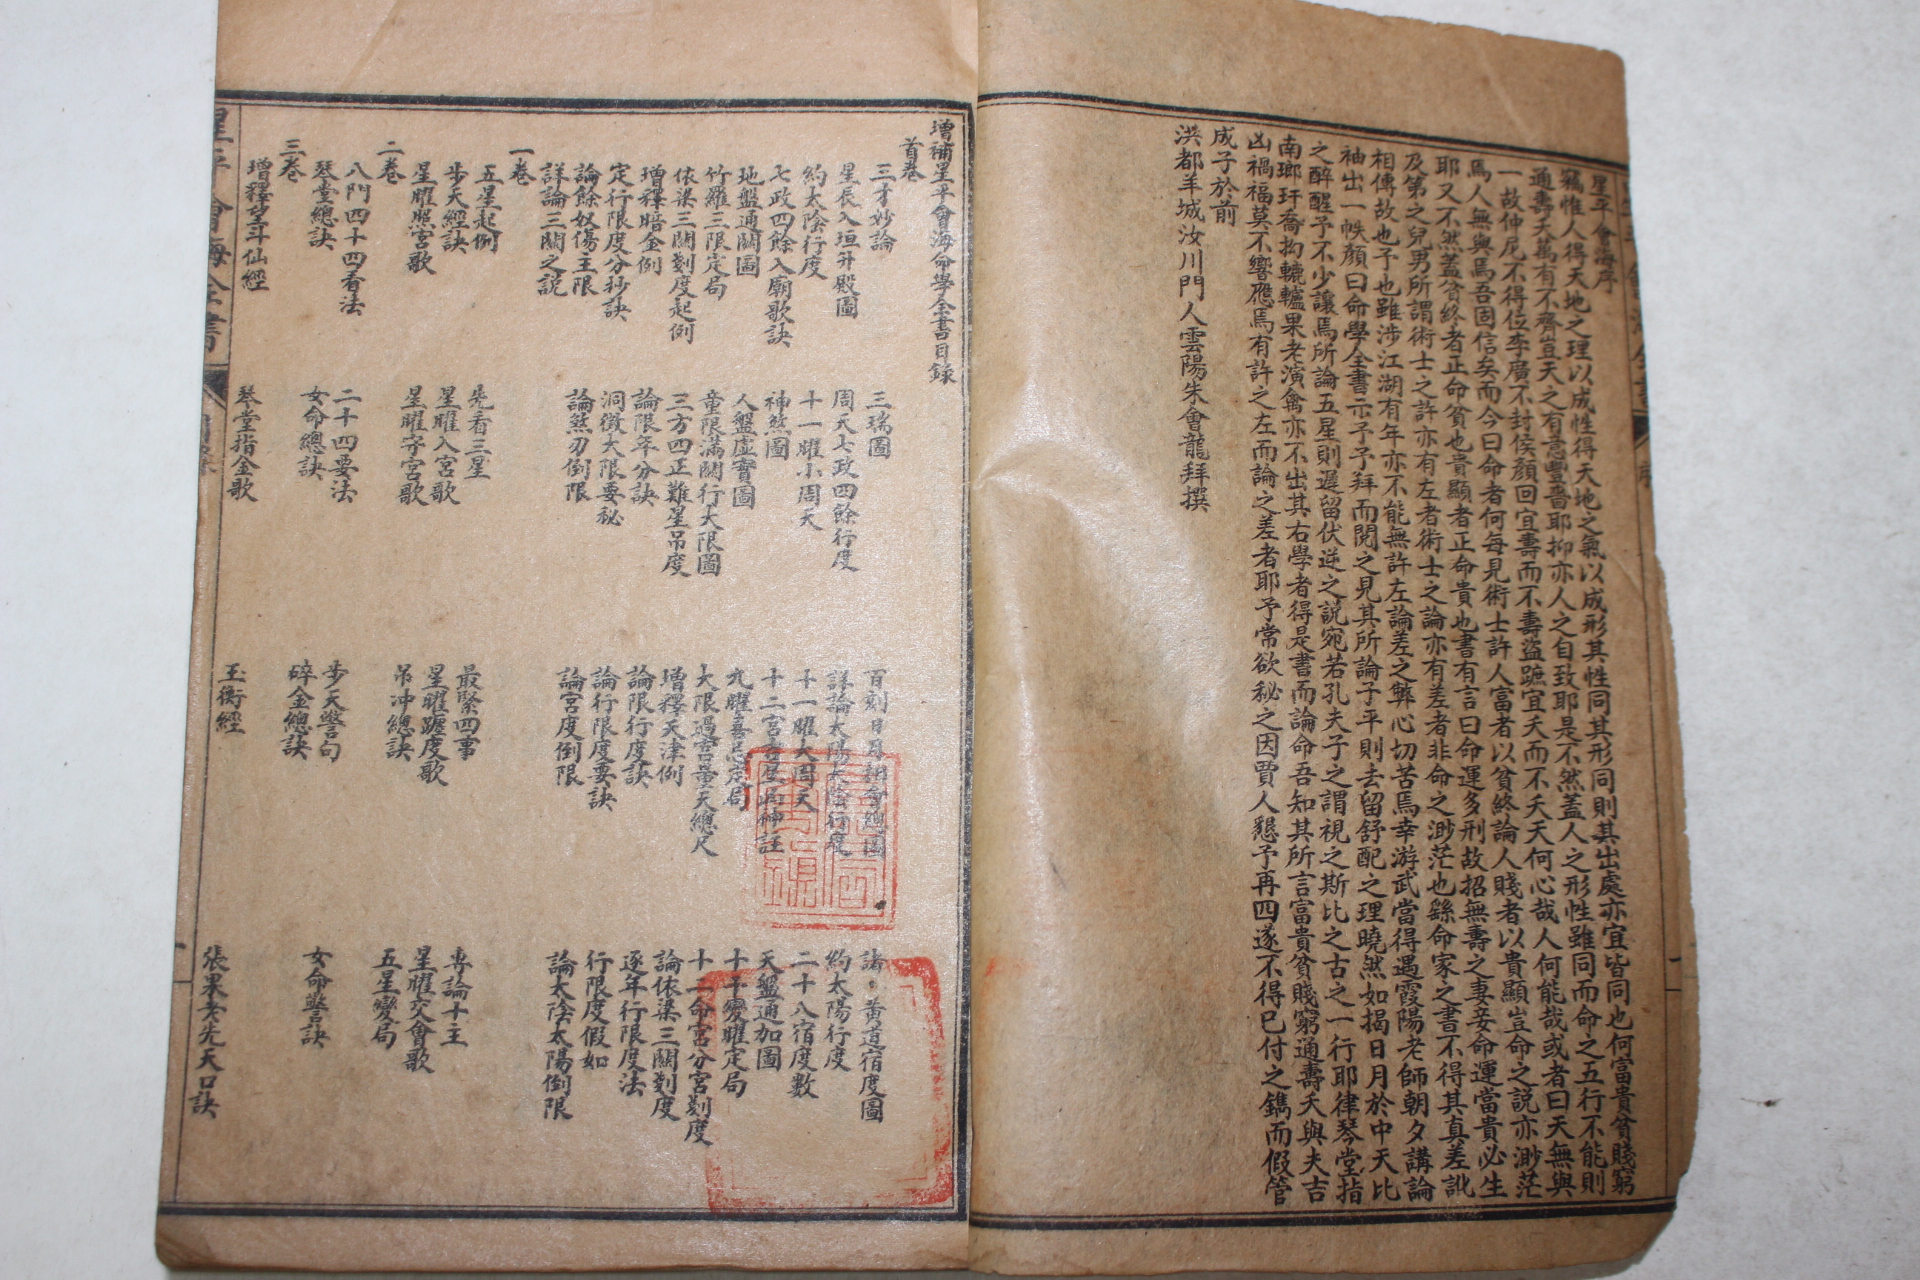 星平會海序
竊惟人得天地之理以成性得天地之氣以成形其性同其形同則其出處亦宜皆同也何富貴貧賤窮
通壽夭萬有不齊豈天之有意豐嗇耶抑亦人之自致耶是不然蓋人之形性雖同而命之五行不能則
一故仲尼不得位李廣不封侯顏回宜壽而不壽盜蹠宜夭而不夭天何心哉人何能哉或者曰天無與
焉人無與焉吾固信矣而今曰命者何每見術士許人富者以貧終論人賤者以貴顯豈命之說亦渺茫
耶又不然蓋貧終者正命貧也貴顯者正命貴也書有言曰命運多刑故招無壽之妻妾命運當貴必生
及第之兒男所謂術士之許亦有左者術士之論亦有差者非命之渺茫也繇命家之書不得其真差訛
相傳故也予也雖涉江湖有年亦不能無許左論差之弊心切苦焉幸游武當得遇霞陽老師朝夕講論
袖出一帙顏曰命學全書示予予拜而閱之見其所論子平則去留舒配之理曉然如揭日月於中天比
之醉醒予不少讓焉所論五星則遲留伏逆之說宛若孔夫子之謂視之斯比之古之一行耶律琴堂指
南瑯玕喬拗轆轤果老演禽亦不出其右學者得是書而論命吾知其所言富貴貧賤窮通壽夭與夫吉
凶禍福莫不響應焉有許之左而論之差者耶予常欲秘之因賈人懇予再四遂不得已付之鐫而假管
成子於前
洪都羊城汝川門人雲陽朱會龍拜撰
增補星平會海命學全書目錄
首卷
三才妙論 三瑞圖
星辰入垣升殿圖 周天七政四餘行度 詳論太陽太陰行度 約太陽行度
約太陰行度 十一曜小周天 十一曜大周天 二十八宿度數
七政四餘入廟歌訣 神煞圖 天盤通加圖
地盤通關圖 人盤虛實圖 九曜喜忌定局 十干變曜定局
竹羅三限定局 童限滿關行大限圖 大限過宮量天總尺 十二命宮分宮剗度
依梁三關剗度起例 三方四正難星吊度 增釋天津例 論依梁三關剗度
增釋暗金例 論限年分訣 論限行度訣 逐年行限度法
定行限度分秒訣 洞微大限要秘 論行限度要訣 行限度假如
論餘奴傷主限 論煞刃倒限 論宮度倒限 論太陰太陽倒限
詳論三關之說
一卷
五星起例 先看三星 最緊四事 專論十主
步天經訣 星曜入宮歌 星曜躔度歌 星曜交會歌
星曜照宮歌 星曜守宮歌 吊冲總訣 五星變局
二卷
八門四十四看法 二十四要法 步天警句 女命警訣
琴堂總訣 女命總訣 碎金總訣
三卷
增釋望斗仙經 琴堂指金歌 玉衡經 張果老先天口訣